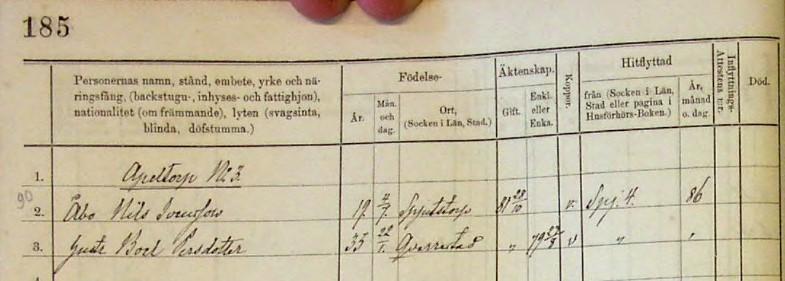 185
Personernas namn, stånd, embete, yrke och nä-
ringsfång, (backstugu-, inhyses- och fattighjon),
nationalitet (om främmande), lyten (svagsinta,
blinda, döfstumma.)
Födelse-
År.
Mån.
och
dag.
Ort,
(Socken i Län, Stad.)
Äktenskap.
Gift.
Enkl.
eller
Enka.
Koppor.
Hitflyttad
från (Socken i Län,
Stad eller pagina i
Husförhörs-Boken.)
År,
månad
o. dag.
Inflyttnings-
Attestens n:r.
Död.
1. Apeltorp No 3.
90
2. Åbo Nils 19 4/7 Spjutstorp 81 28/10 v. Spj. 4. 86
3. Boel Persdotter 33 22/1 Qverrestad " 79 v " "